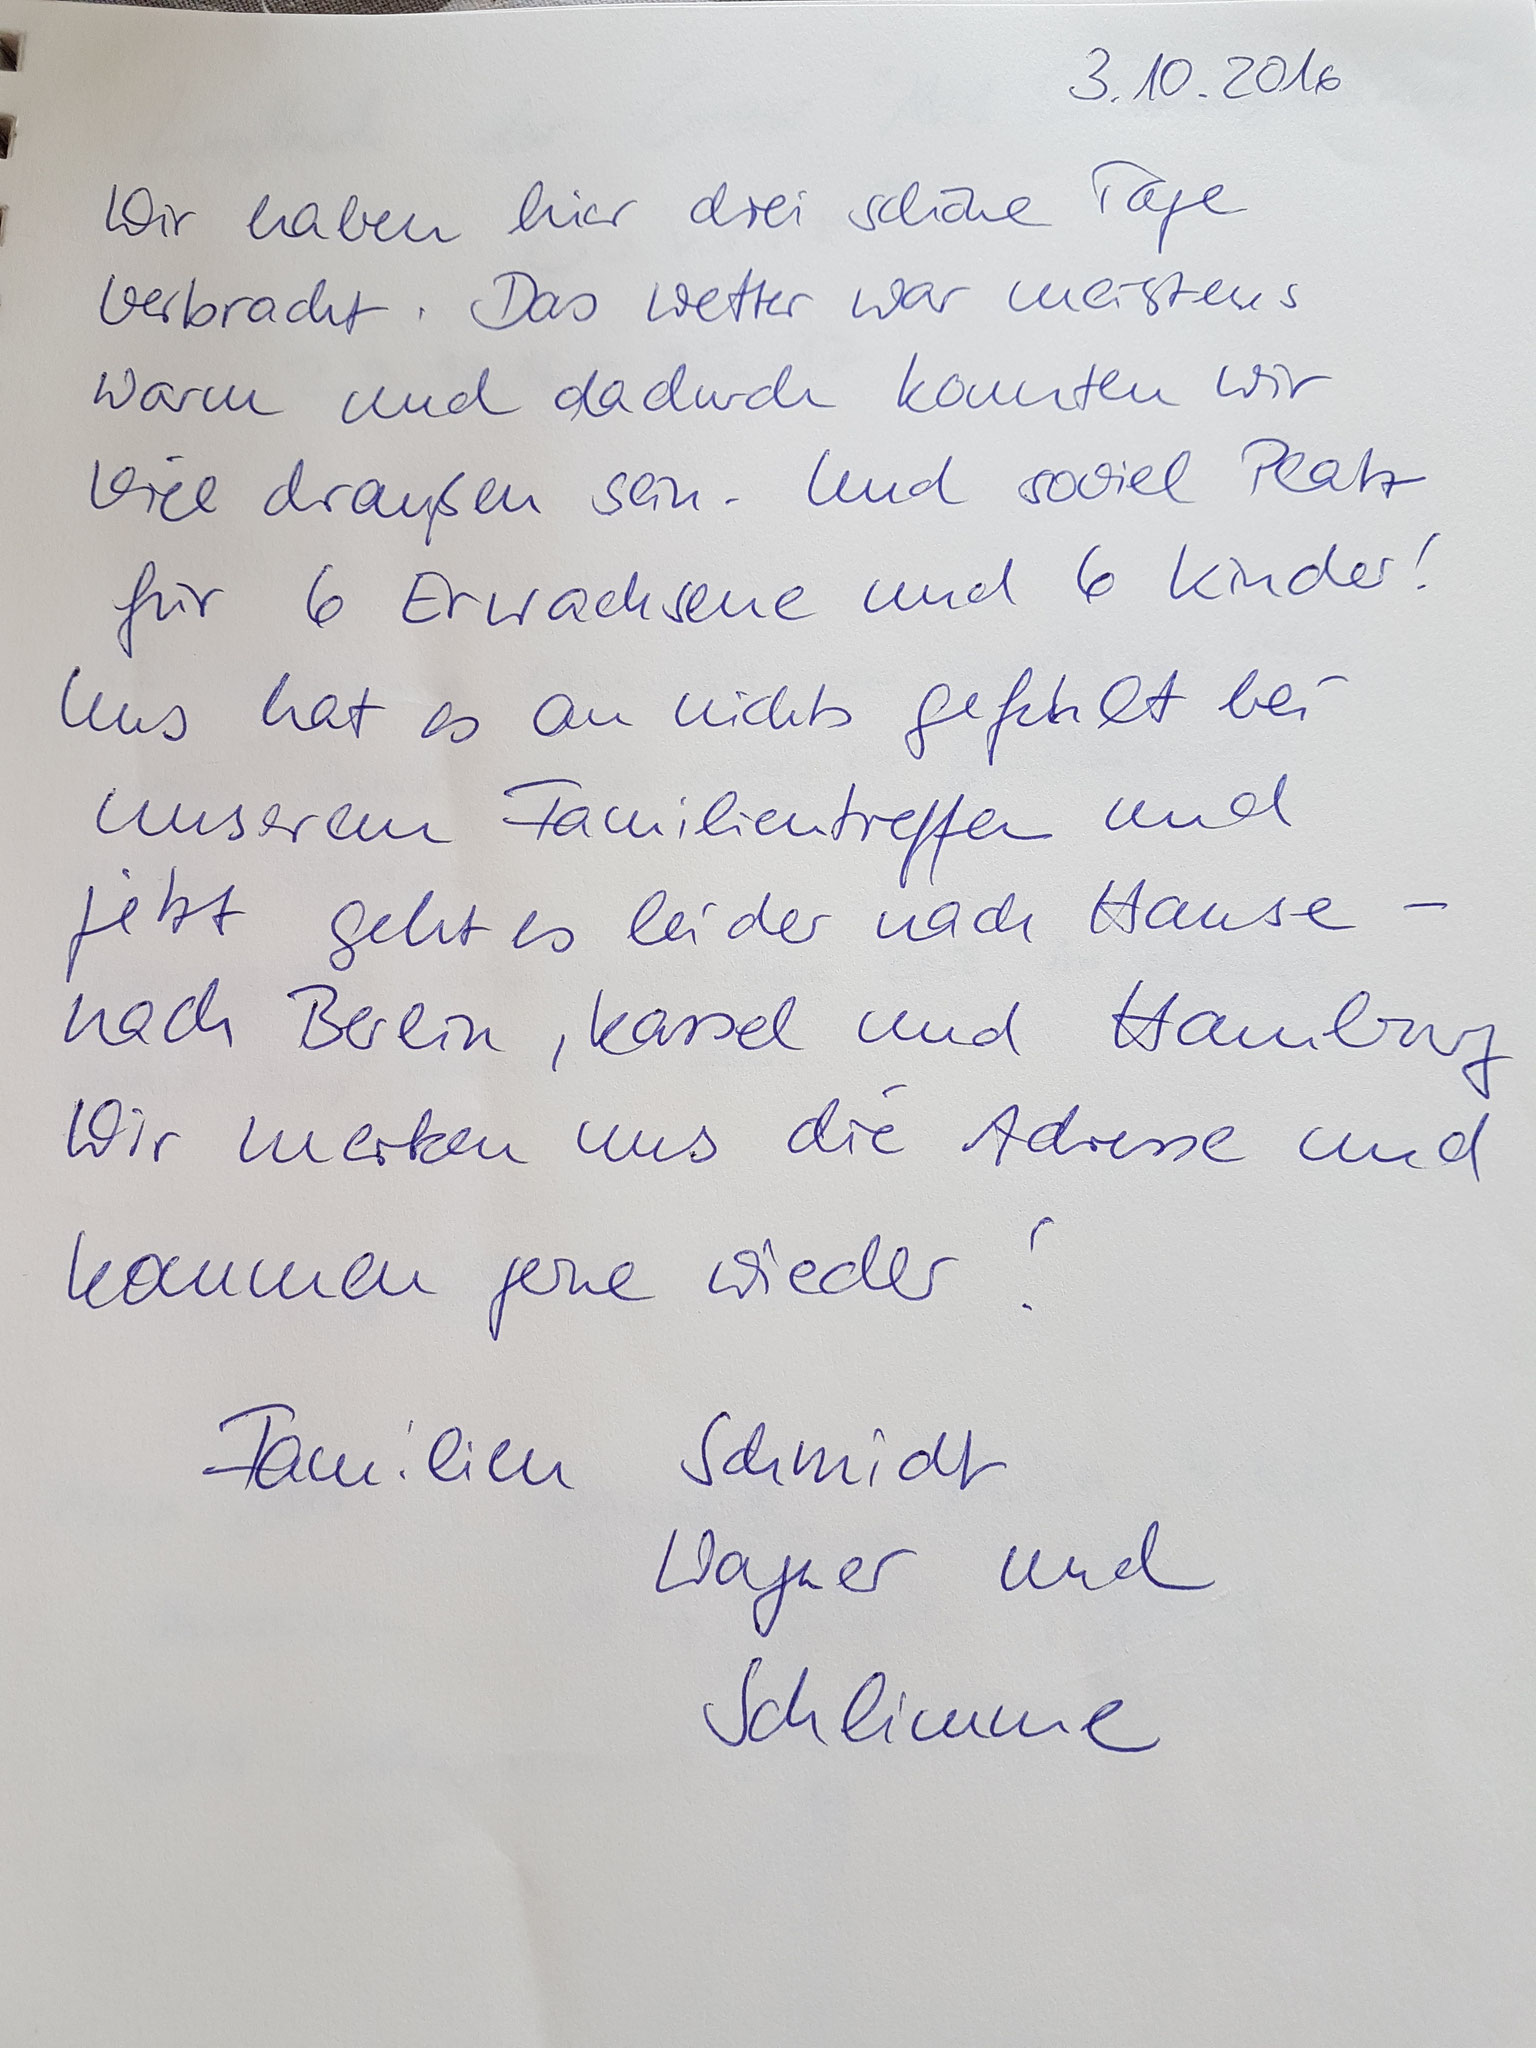 3.10.2016
Wir haben hier drei schöne Tage
verbracht. Das Wetter war meistens
warm und dadurch konnten wir
viel draußen sein. Und soviel Platz
für 6 Erwachsene und 6 Kinder!
Uns hat es an nichts gefehlt bei
unserem Familientreffen und
jetzt geht es leider nach Hause -
nach Berlin, Kassel und Hamburg
Wir merken uns die Adresse und
kommen gerne wieder!
Familien Schmidt
Wagner und
Schlimme